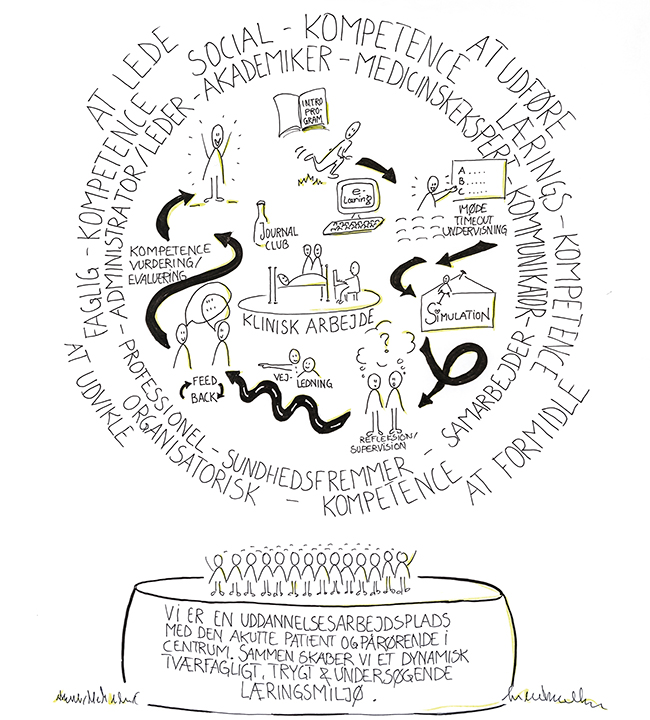 AT LEDE
AT UDFØRE
AT FORMIDLE
AT UDVIKLE
SOCIAL - KOMPETENCE
LÆRINGS - KOMPETENCE
ORGANISATORISK - KOMPETENCE
FAGLIG - KOMPETENCE
ADMINISTRATOR/LEDER - AKADEMIKER - MEDICINSK EKSPERT - KOMMUNIKATOR - SAMARBEJDER - SUNDHEDSFREMMER - PROFESSIONEL -
INTRO
PRO-
GRAM
e-
Læring
A.....
B.....
C.....
MØDE
TIMEOUT
UNDERVISNING
JOURNAL
CLUB
KOMPETENCE
VURDERING/
EVALUERING
KLINISK ARBEJDE
SIMULATION
?
VEJ-
LEDNING
FEED
BACK
REFLEKSION/
SUPERVISION
VI ER EN UDDANNELSESARBEJDSPLADS
MED DEN AKUTTE PATIENT OG PÅRØRENDE I
CENTRUM. SAMMEN SKABER VI ET DYNAMISK
TVÆRFAGLIGT, TRYGT & UNDERSØGENDE
LÆRINGSMILJØ.